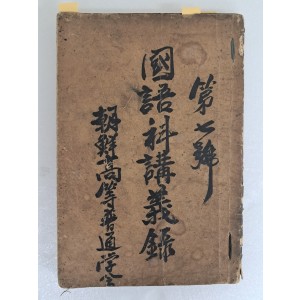 第七號
國語科講義錄
朝鮮高等普通学会